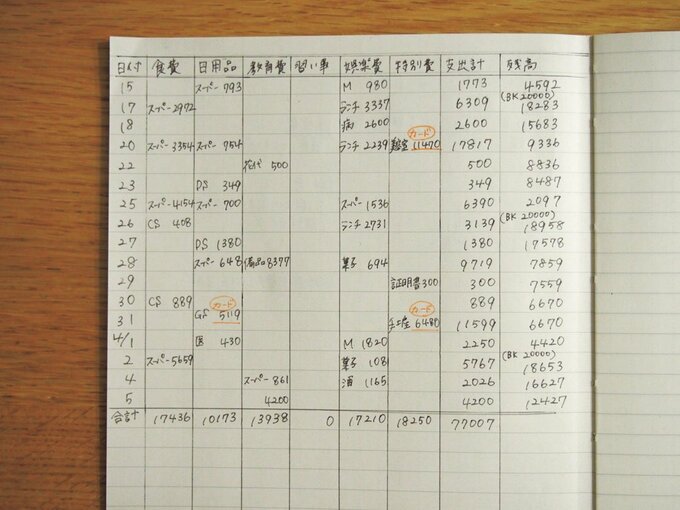 日付 食費 日用品 教育費 習い事 娯楽費 特別費 支出計 残高
15 スーパー 793 M 980 1773 4592
(BK 20000)
17 スーパー 2972 ランチ 3337 6309 18283
18 病 2600 2600 15683
カード
20 スーパー 3354 スーパー 754 ランチ 2239 11470 17817 9336
22 花代 500 500 8836
23 DS 349 349 8487
25 スーパー 4154 スーパー 700 スーパー 1536 6390 2097
(BK 20000)
26 CS 408 ランチ 2731 3139 18958
27 DS 1380 1380 17578
28 スーパー 648 備品 8377 菓子 694 9719 7859
29 証明書 300 300 7559
30 CS 889 カード カード 889 6670
31 GF 5119 手土産 6480 11599 6670
4/1 医 430 M 1820 2250 4420
(BK 20000)
2 スーパー 5659 菓子 108 5767 18653
4 スーパー 861 酒 1165 2026 16627
5 4200 4200 12427
合計 17436 10173 13938 0 17210 18250 77007